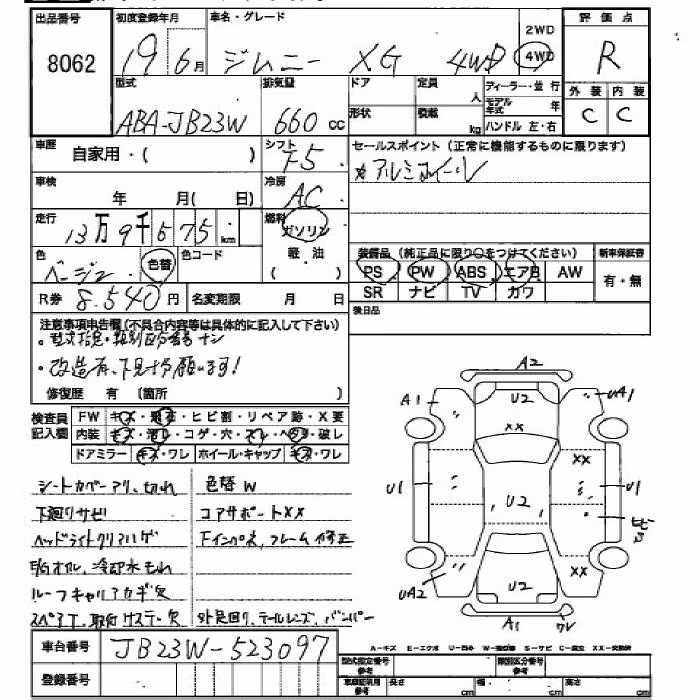 出品番号 初度登録年月 車名・グレード 評価点
8062 19 6月 ジムニー XG 4WD 2WD 4WD R
型式 排気量 ドア 定員 人 ディーラー・並行 外装 内装
ABA-JB23W 660cc 形状 積載 kg モデル年式 年 ハンドル 左・右 C C
車歴 自家用・( ) シフト F5 セールスポイント(正常に機能するものに限ります)
車検 年 月(日) 冷房 AC アルミホイール
走行 13万9千575km 燃料 ガソリン
軽・油 装備品(純正品に限り○をつけてください) 新車保証書
色 ベージュ 色替 色コード ( ) PS PW ABS エアB AW 有・無
R券 8,540円 名変期限 月 日 SR ナビ TV カワ
後日品
注意事項申告欄(不具合内容等は具体的に記入して下さい)
・型式指定・類別区分番号ナシ
・改造有、下見ヲお願います!
修復歴 有(箇所 )
検査員記入欄 FW キズ・飛石・ヒビ割・リペア跡・X要
内装 キズ・汚レ・コゲ・穴・スレ・ヘタリ・破レ
ドアミラー キズ・ワレ ホイール・キャップ キズ・ワレ
シートカバーアリ、切れ 色替W
下廻りサビ コアサポートXX
ヘッドライトクリアハゲ Fインパネ、フレーム修正
冷却水もれ
ルーフキャリアカギ欠
スペアT、取付けステー欠 外足回り、テールレンズ、バンパー
A2
A1 U2 UA1
XX
XX
U1 U2 U1
ヒビ
XX
UA2 U2
A1 ワレ
車台番号 JB23W-523097
A-キズ E-エクボ U-凹み W-補修跡 S-サビ C-腐立 XX-交換済
登録番号 型式指定番号 参考 類別区分番号 参考
車庫証明用 参考 長さ cm 幅 cm 高さ cm